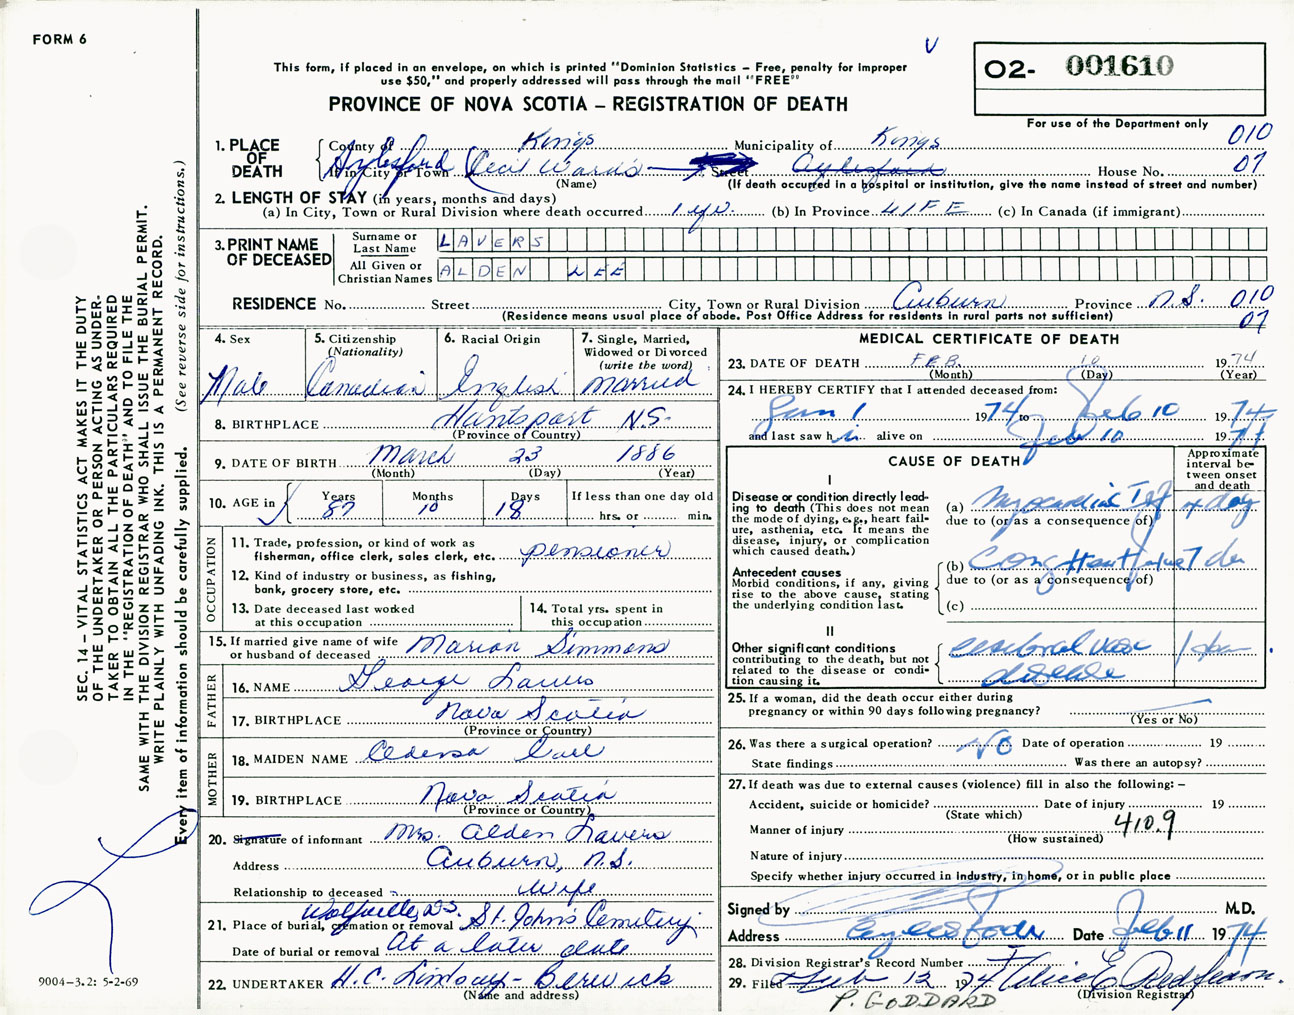 FORM 6
This form, if placed in an envelope, on which is printed "Dominion Statistics – Free, penalty for improper
use $50," and properly addressed will pass through the mail "FREE"
PROVINCE OF NOVA SCOTIA – REGISTRATION OF DEATH
O2- 001610
For use of the Department only
010
07
SEC. 14 – VITAL STATISTICS ACT MAKES IT THE DUTY
OF THE UNDERTAKER OR PERSON ACTING AS UNDER-
TAKER TO OBTAIN ALL THE PARTICULARS REQUIRED
IN THE "REGISTRATION OF DEATH" AND TO FILE THE
SAME WITH THE DIVISION REGISTRAR WHO SHALL ISSUE THE BURIAL PERMIT.
WRITE PLAINLY WITH UNFADING INK. THIS IS A PERMANENT RECORD.
Every item of information should be carefully supplied. (See reverse side for instructions.)
1. PLACE OF DEATH
County of Kings Municipality of Kings
If in City or Town Aylesford Cecil Ward's Street Aylesford House No.
(Name) (If death occurred in a hospital or institution, give the name instead of street and number)
2. LENGTH OF STAY (in years, months and days)
(a) In City, Town or Rural Division where death occurred 1 yr. (b) In Province LIFE (c) In Canada (if immigrant)
3. PRINT NAME OF DECEASED
Surname or Last Name LAVERS
All Given or Christian Names ALDEN LEE
RESIDENCE No. Street City, Town or Rural Division Auburn Province N.S. 010
(Residence means usual place of abode. Post Office Address for residents in rural parts not sufficient) 07
4. Sex Male
5. Citizenship (Nationality) Canadian
6. Racial Origin English
7. Single, Married, Widowed or Divorced (write the word) Married
8. BIRTHPLACE Hantsport N.S.
(Province or Country)
9. DATE OF BIRTH March 23 1886
(Month) (Day) (Year)
10. AGE in Years 87 Months 10 Days 18 If less than one day old
hrs. or min.
OCCUPATION
11. Trade, profession, or kind of work as
fisherman, office clerk, sales clerk, etc. pensioner
12. Kind of industry or business, as fishing,
bank, grocery store, etc.
13. Date deceased last worked
at this occupation
14. Total yrs. spent in
this occupation
15. If married give name of wife
or husband of deceased Marion Simmons
FATHER
16. NAME George Lavers
17. BIRTHPLACE Nova Scotia
(Province or Country)
MOTHER
18. MAIDEN NAME
19. BIRTHPLACE Nova Scotia
(Province or Country)
20. Signature of informant Mrs. Alden Lavers
Address Auburn, N.S.
Relationship to deceased wife
Wolfville, N.S.
21. Place of burial, cremation or removal St. John's Cemetery
Date of burial or removal At a later date
22. UNDERTAKER H.C. Lindsay - Berwick
(Name and address)
MEDICAL CERTIFICATE OF DEATH
23. DATE OF DEATH FEB. 10 1974
(Month) (Day) (Year)
24. I HEREBY CERTIFY that I attended deceased from:
Jan 1 1974 to Feb 10 1974
and last saw him alive on Feb 10 1974
CAUSE OF DEATH
Approximate
interval be-
tween onset
and death
I
Disease or condition directly lead-
ing to death (This does not mean
the mode of dying, e.g., heart fail-
ure, asthenia, etc. It means the
disease, injury, or complication
which caused death.)
(a) Myocardial Inf 4 day
due to (or as a consequence of)
Antecedent causes
Morbid conditions, if any, giving
rise to the above cause, stating
the underlying condition last.
(b) Cong Heart
due to (or as a consequence of)
(c)
II
Other significant conditions
contributing to the death, but not
related to the disease or condi-
tion causing it.
cerebral vasc
disease
25. If a woman, did the death occur either during
pregnancy or within 90 days following pregnancy?
(Yes or No)
26. Was there a surgical operation? No Date of operation 19
State findings Was there an autopsy?
27. If death was due to external causes (violence) fill in also the following: –
Accident, suicide or homicide? Date of injury 19
(State which)
Manner of injury 410.9
(How sustained)
Nature of injury
Specify whether injury occurred in industry, in home, or in public place
Signed by M.D.
Address Aylesford Date Feb 11 1974
28. Division Registrar's Record Number
29. Filed Feb 12 1974
(Division Registrar)
P. GODDARD
9004-3.2: 5-2-69